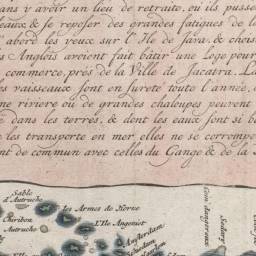 ans y avoir un lieu de retraite, ou ils pusse
eaux, & se reposer des grandes fatigues de la
abord les yeux sur l'Ile de Java, & choisi
s Anglois avoient fait bâtir une Loge pour
commerce, près de la Ville de Jacatra. La
es vaisseaux sont en sureté toute l'année,
ne riviere ou de grandes chaloupes peuvent
dans les terres, & dont les eaux sont si b
les transporte en mer elles ne se corromp
nt de commun avec celles du Gange & de la S
Sable d'Autruche
les Armes de Horne
Chiribon
l'Ile Angeniet
Autruche
Amsterdam
Coin dangereux
Sedary